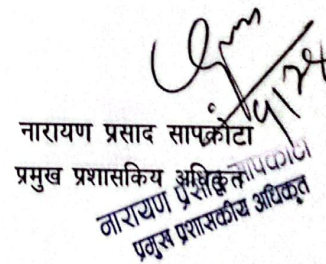 नारायण प्रसाद सापकोटा
प्रमुख प्रशासकिय अधिकृत
नारायण प्रसाद सापकोटा
प्रमुख प्रशासकीय अधिकृत